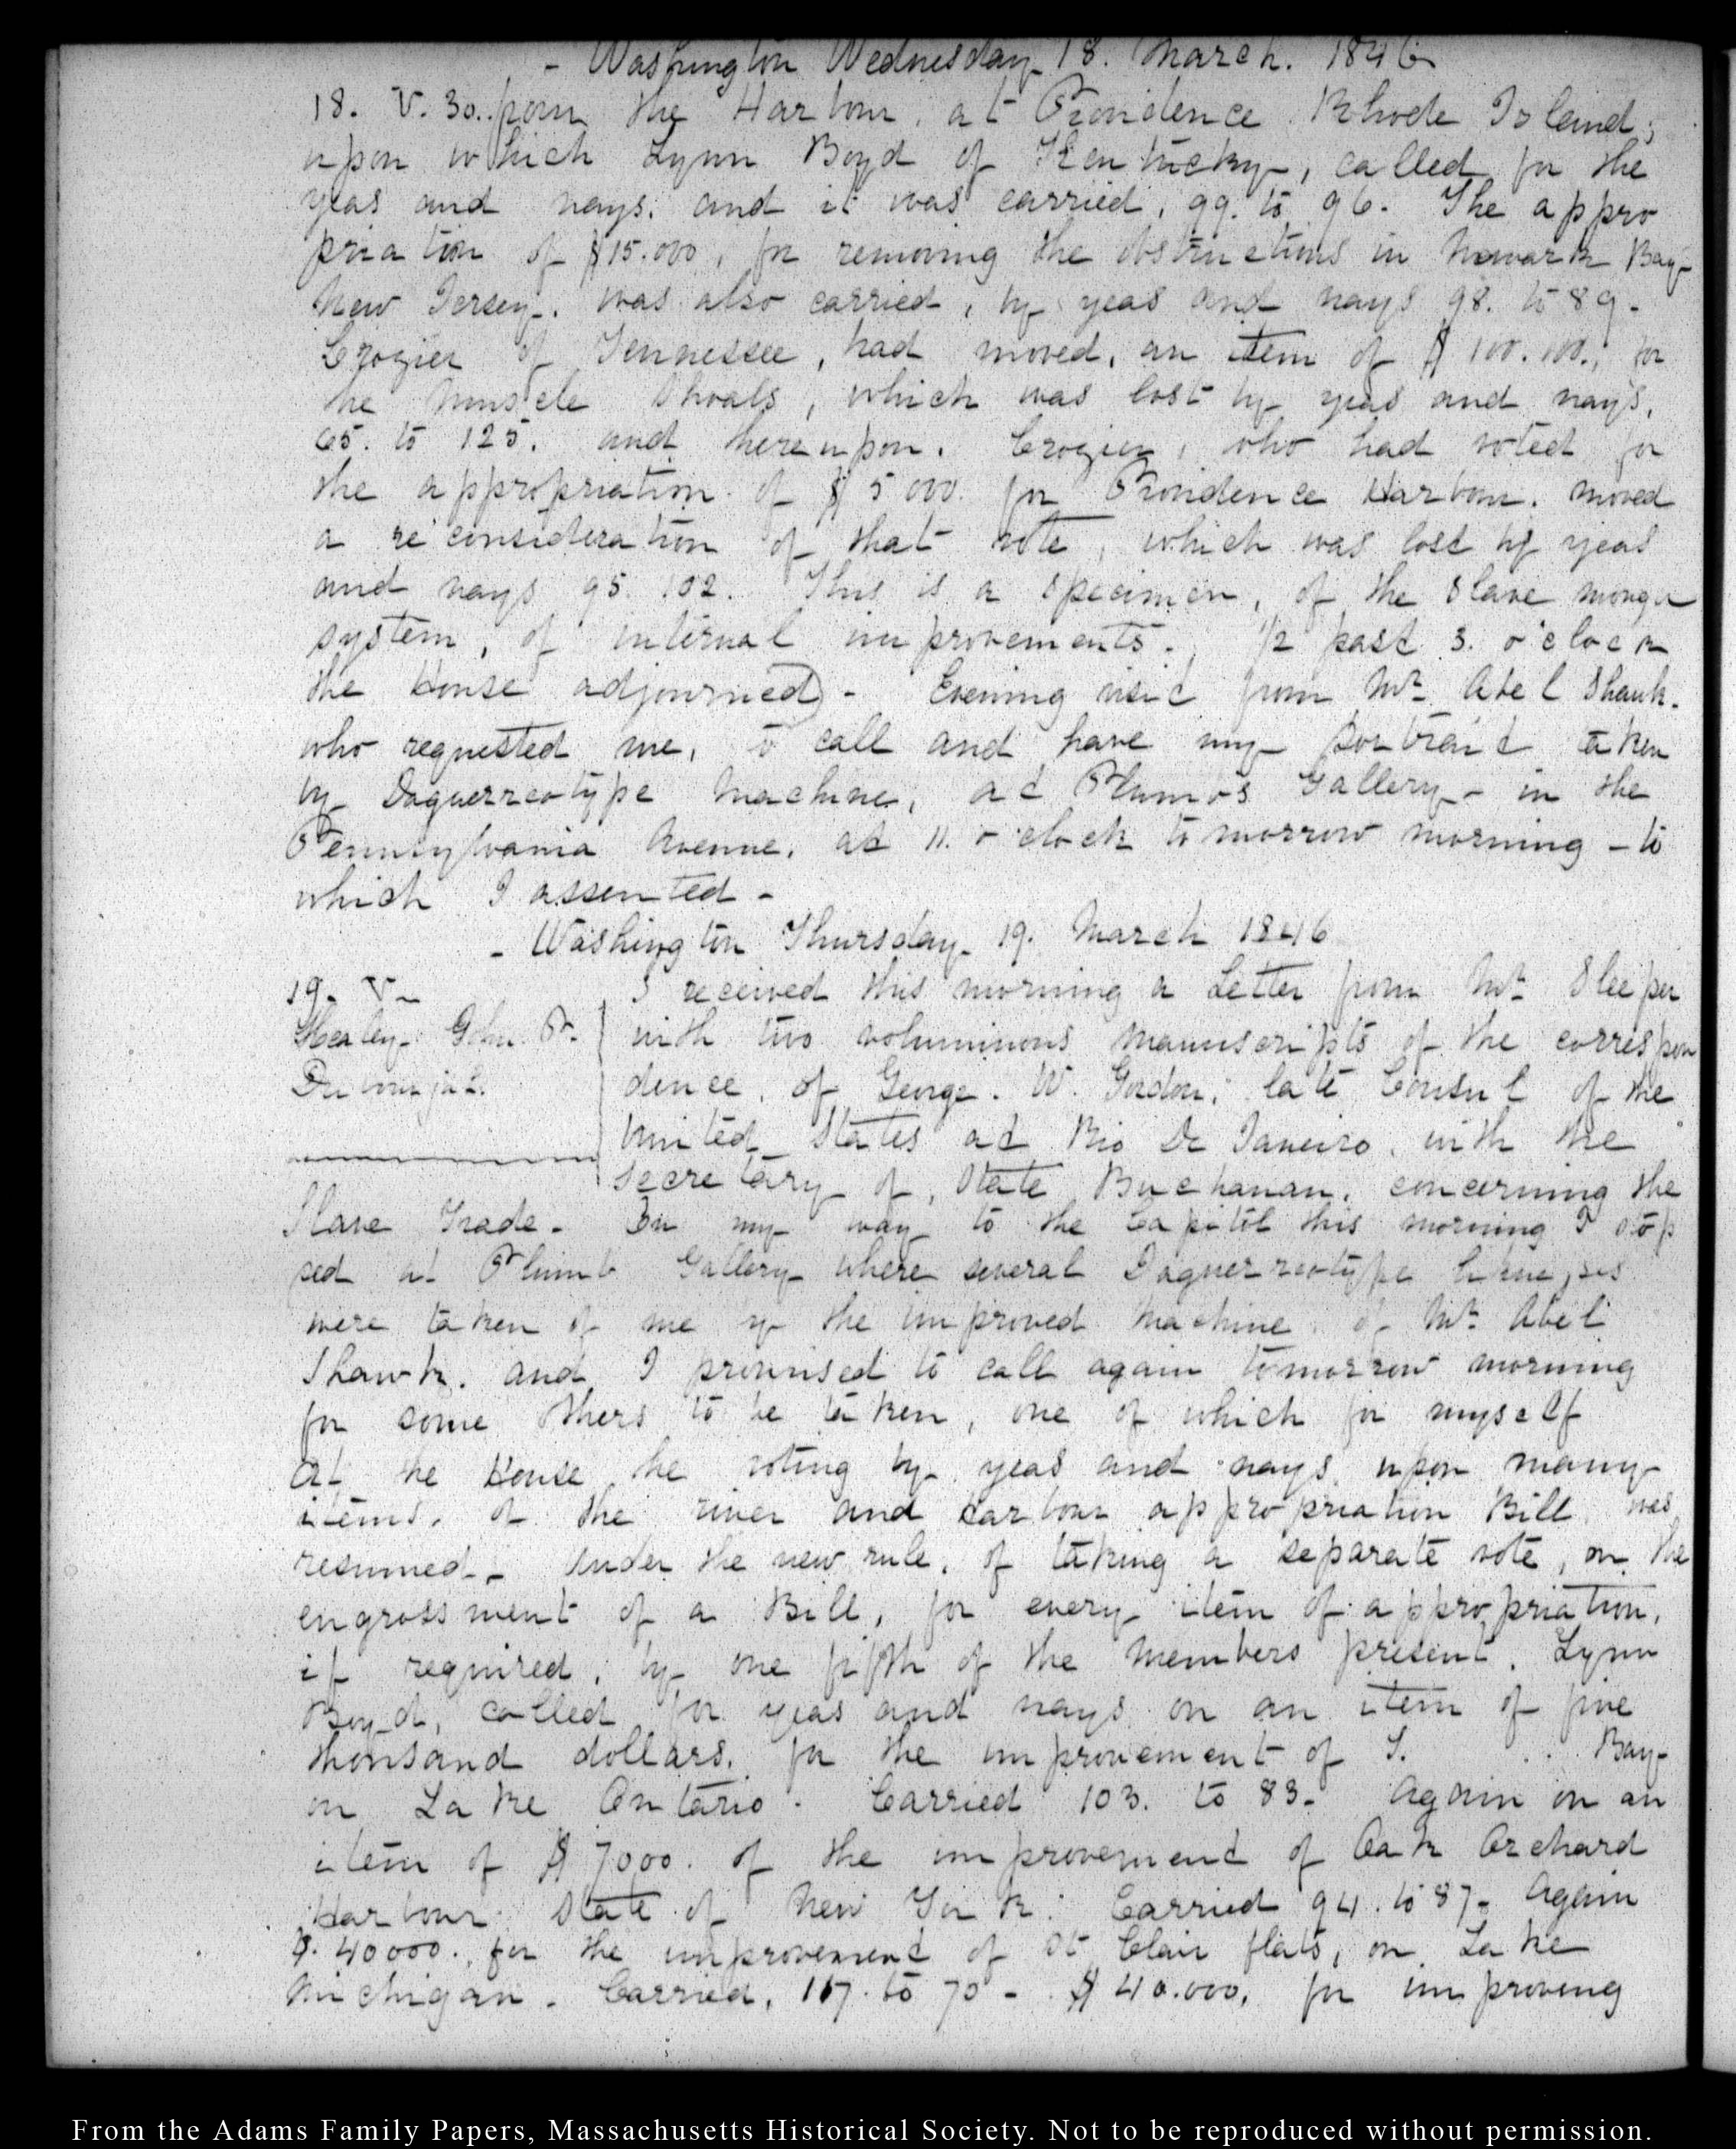 - Washington Wednesday 18. March. 1846
18. V. 30. from the Harbour, at Providence Rhode Island;
upon which Lynn Boyd of Kentucky, called for the
yeas and nays. and it was carried, 99. to 96. The appro
priation of $15.000, for removing the obstructions in Newark Bay
New Jersey. was also carried, by yeas and nays 98. to 89-
Crozier of Tennessee, had moved, an item of $100.000., for
the Muscle Shoals, which was lost by yeas and nays,
65. to 125. and thereupon. Crozier, who had voted for
the appropriation of $5000. for Providence Harbour. moved
a reconsideration of that vote, which was lost by yeas
and nays 95. 102. This is a specimen, of the Slave monger
system, of internal improvements. 1/2 past 3. o'clock
the House adjourned) - Evening visit from Mr. Abel Shawk.
who requested me, to call and have my portrait taken
by Daguerreotype Machine, at Plumb's Gallery - in the
Pennsylvania Avenue, at 11. o'clock tomorrow morning - to
which I assented -
- Washington Thursday 19. March 1846
19. V-
I received this morning a Letter from Mr. Sleeper
Healey John P.
with two voluminous manuscripts of the correspon
dence, of George. W. Gordon, late Consul of the
United States at Rio De Janeiro, with the
Secretary of State Buchanan, concerning the
Slave Trade. In my way to the Capitol this morning I stop
ped at Plumb Gallery where several Daguerreotype likenesses
were taken of me by the improved Machine of Mr. Abel
Shawk. and I promised to call again tomorrow morning
for some others to be taken, one of which for myself
At the House the voting by yeas and nays upon many
items, of the river and Harbour appropriation Bill was
resumed - Under the new rule, of taking a separate vote, on the
engrossment of a Bill, for every item of appropriation,
if required, by one fifth of the Members present. Lynn
Boyd, called for yeas and nays on an item of five
thousand dollars. for the improvement of S. . . Bay
on Lake Ontario. Carried 103. to 83- Again on an
item of $7000. of the improvement of Oak Orchard
Harbour State of New York: Carried 94. to 87- Again
$. 40000. for the improvement of St Clair flats, on Lake
Michigan. Carried, 117. to 70 - $40.000, for improving
From the Adams Family Papers, Massachusetts Historical Society. Not to be reproduced without permission.